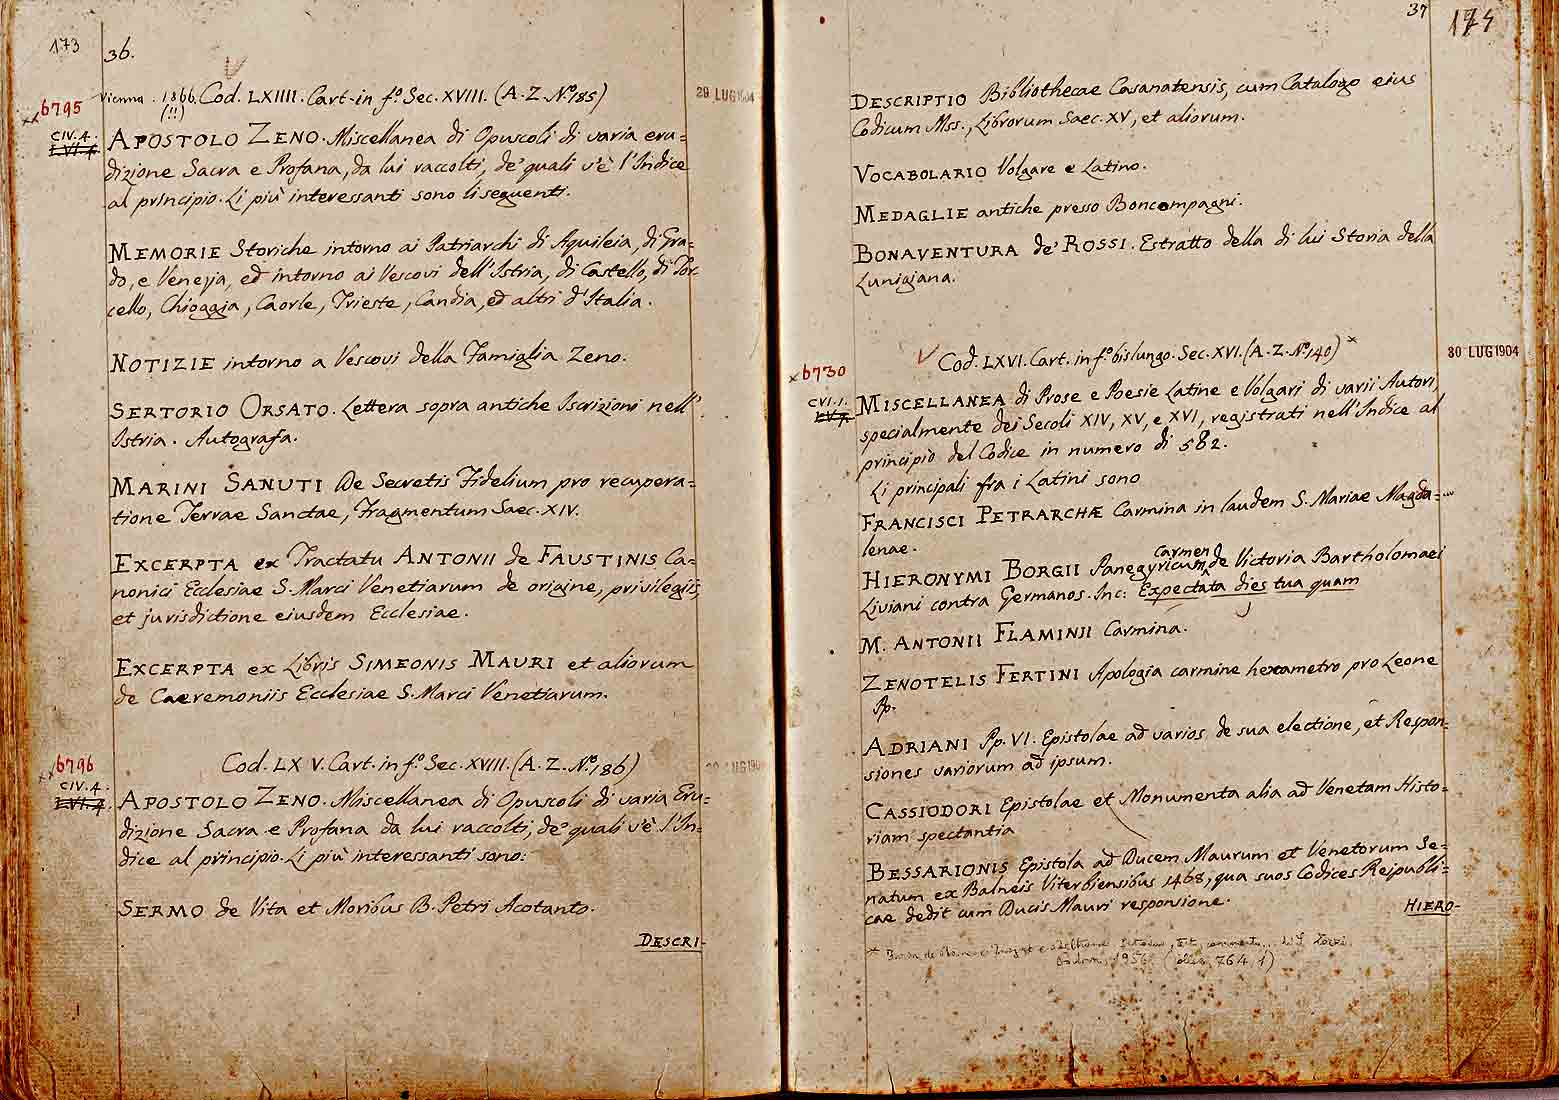 173
36.
Vienna. 1866. Cod. LXIIII. Cart. in fº. Sec. XVIII. (A. Z. Nº. 185)
(!!)
xx6795
29 LUG 1904
CIV. 4.
APOSTOLO ZENO. Miscellanea di Opuscoli di varia eru=
dizione Sacra e Profana, da lui raccolti, de' quali v'è l'Indice
al principio. Li più interessanti sono li seguenti.
MEMORIE Storiche intorno ai Patriarchi di Aquileia, di Gra=
do, e Venezia, ed intorno ai Vescovi dell'Istria, di Castello, di Tor-
cello, Chioggia, Caorle, Trieste, Candia, ed altri d'Italia.
NOTIZIE intorno a Vescovi della Famiglia Zeno.
SERTORIO ORSATO. Lettera sopra antiche Iscrizioni nell'
Istria. Autografa.
MARINI SANUTI De Secretis Fidelium pro recupera=
tione Terrae Sanctae, Fragmentum Saec. XIV.
EXCERPTA ex Tractatu ANTONII de FAUSTINIS Ca=
nonici Ecclesiae S. Marci Venetiarum de origine, privilegiis,
et jurisdictione eiusdem Ecclesiae.
EXCERPTA ex Libris SIMEONIS MAURI et aliorum
de Caeremoniis Ecclesiae S. Marci Venetiarum.
xx6796
Cod. LXV. Cart. in fº. Sec. XVIII. (A. Z. Nº. 186)
CIV. 4.
APOSTOLO ZENO. Miscellanea di Opuscoli di varia Eru=
dizione Sacra e Profana da lui raccolti, de' quali v'è l'In=
dice al principio. Li più interessanti sono:
SERMO de Vita et Moribus B. Petri Acotanto.
DESCRI-
37
174
DESCRIPTIO Bibliothecae Casanatensis, cum Catalogo eius
Codicum Mss., Librorum Saec. XV, et aliorum.
VOCABOLARIO Volgare e Latino.
MEDAGLIE antiche presso Boncompagni.
BONAVENTURA de' ROSSI. Estratto della di lui Storia della
Lunigiana.
x6730
Cod. LXVI. Cart. in fº. bislungo. Sec. XVI. (A. Z. Nº. 140) *
30 LUG 1904
CVI. 1.
MISCELLANEA di Prose e Poesie Latine e Volgari di varii Autori,
specialmente dei Secoli XIV, XV, e XVI, registrati nell'Indice al
principio del Codice in numero di 582.
Li principali fra i Latini sono
FRANCISCI PETRARCHÆ Carmina in laudem S. Mariae Magda=
lenae.
carmen
HIERONYMI BORGII Panegyricum de Victoria Bartholomaei
Liviani contra Germanos. Inc: Expectata dies tua quam
M. ANTONII FLAMINII Carmina.
ZENOTELIS FERTINI Apologia carmine hexametro pro Leone
Pp.
ADRIANI Pp. VI. Epistolae ad varios de sua electione, et Respon=
siones variorum ad ipsum.
CASSIODORI Epistolae et Monumenta alia ad Venetam Histo=
riam spectantia
BESSARIONIS Epistola ad Ducem Maurum et Venetorum Se=
natum ex Balneis Viterbiensibus 1468, qua suos Codices Reipubli=
cae dedit cum Ducis Mauri responsione.
HIERO-
1956 764